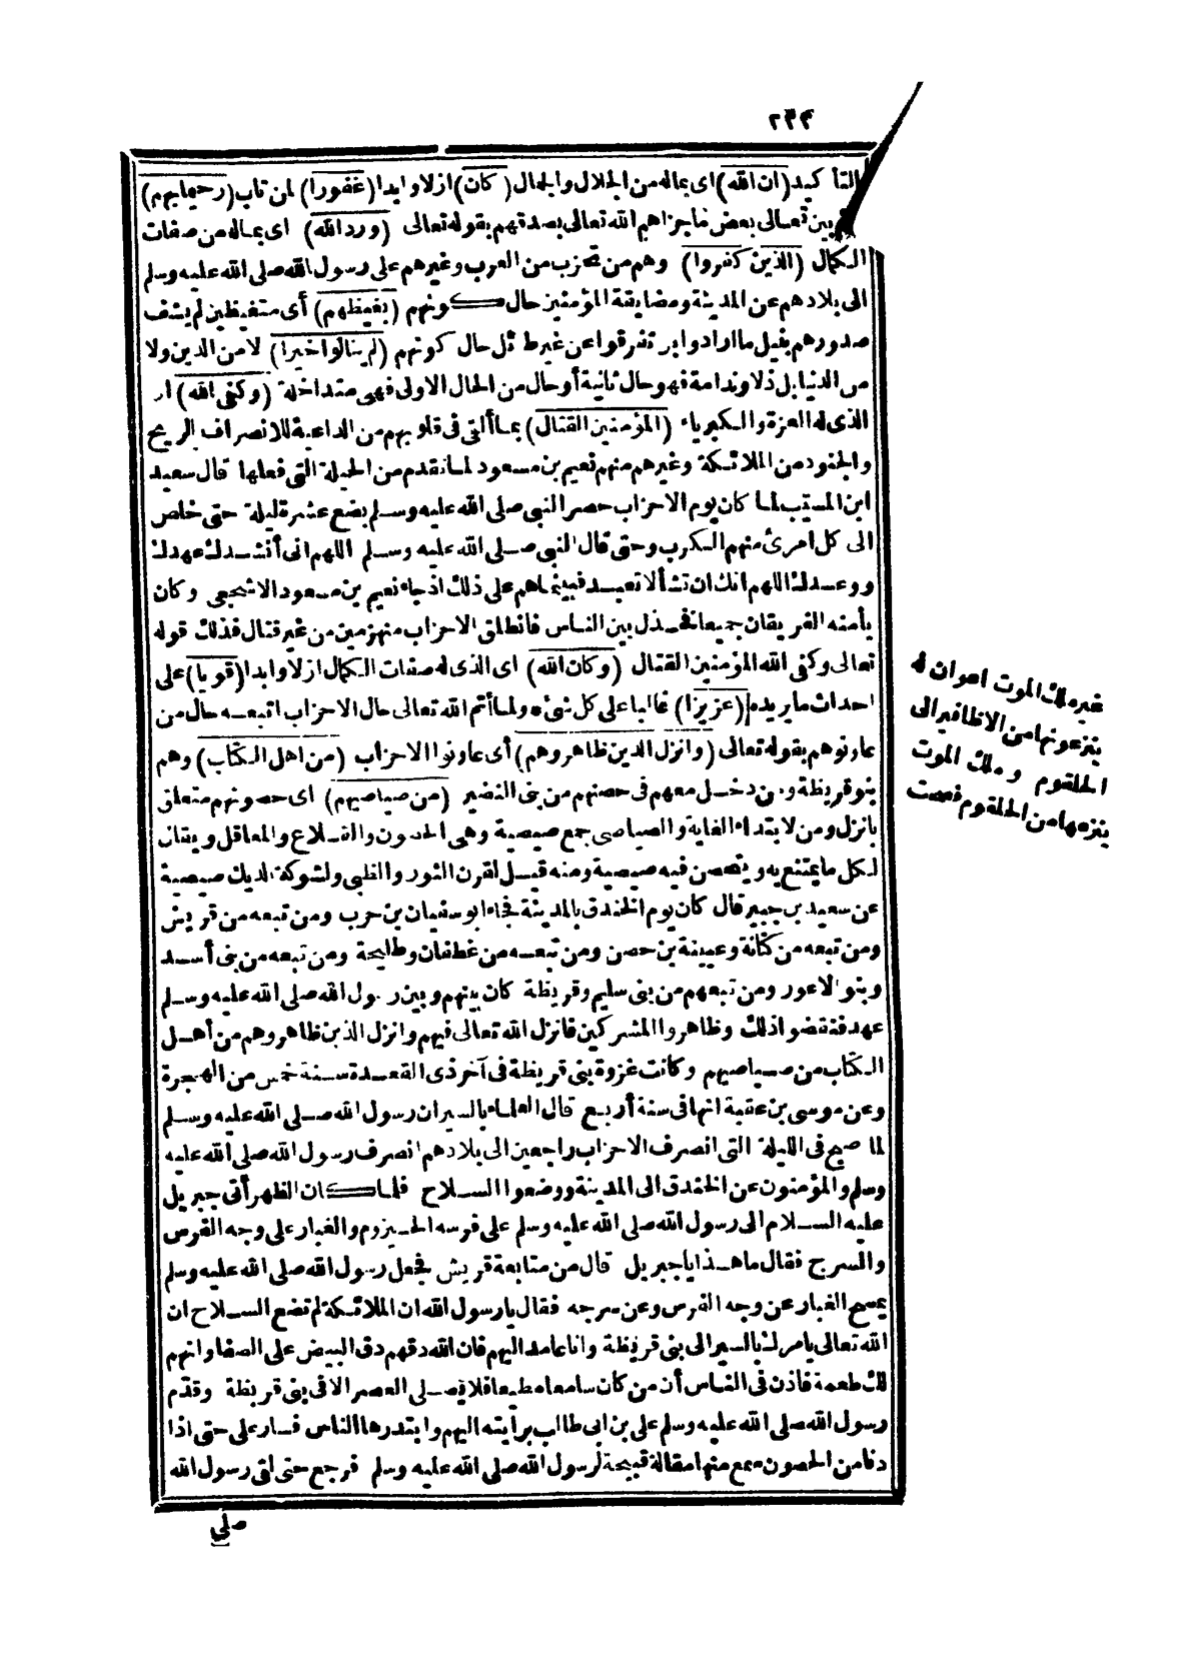 ٢٣٣
التأكيد (ان الله) اى بماله من الجلال والجمال (كان) ازلا وابدا (غفورا) لمن تاب (رحيما بهم)
بين تعالى بعض ما جزاهم الله تعالى بصدقهم بقوله تعالى (ورد الله) اى بماله من صفات
الكمال (الذين كفروا) وهم من تحزب من العرب وغيرهم على رسول الله صلى الله عليه وسلم
الى بلادهم عن المدينة ومضايقة المؤمنين حال كونهم (بغيظهم) أى متغيظين لم يشف
صدورهم بنيل ما ارادوا تفرقوا عن غير طائل حال كونهم (لم ينالوا خيرا) لا من الدين ولا
من الدنيا بل ذلا وندامة فهو حال ثانية أو حال من الحال الاولى فهى متداخلة (وكفى الله) اى
الذى له العزة والكبرياء (المؤمنين القتال) بما ألقى فى قلوبهم من الداعية للانصراف الريح
والجنود من الملائكة وغيرهم منهم نعيم بن مسعود لما تقدم من الحيلة التى فعلها قال سعيد
ابن المسيب لما كان يوم الاحزاب حصر النبى صلى الله عليه وسلم بضع عشرة ليلة حتى خلص
الى كل امرئ منهم الكرب وحتى قال النبى صلى الله عليه وسلم اللهم انى أنشدك عهدك
ووعدك اللهم انك ان تشألا تعبد فبينما هم على ذلك اذ جاء نعيم بن مسعود الاشجعى وكان
يأمنه الفريقان جميعا فخذل بين الناس فانطلق الاحزاب منهزمين من غير قتال فذلك قوله
تعالى وكفى الله المؤمنين القتال (وكان الله) اى الذى له صفات الكمال ازلا وابدا (قويا) على
احداث ما يريده (عزيزا) غالبا على كل شئ ولما أتم الله تعالى حال الاحزاب اتبعه حال من
عاونوهم بقوله تعالى (وانزل الذين ظاهروهم) أى عاونوا الاحزاب (من اهل الكتاب) وهم
بنو قريظة ومن دخل معهم فى حصنهم من بنى النضير (من صياصيهم) اى حصونهم متعلق
بانزل ومن لابتداء الغاية والصياصى جمع صيصية وهى الحصون والقلاع والمعاقل ويقال
لكل ما يمتنع به ويتحصن فيه صيصية ومنه قيل لقرن الثور والظبى ولشوكة الديك صيصية
عن سعيد بن جبير قال كان يوم الخندق بالمدينة فجاء ابو سفيان بن حرب ومن تبعه من قريش
ومن تبعه من كنانة وعيينة بن حصن ومن تبعه من غطفان وطليحة ومن تبعه من بنى أسد
وبنو الاعور ومن تبعهم من بنى سليم وقريظة كان بينهم وبين رسول الله صلى الله عليه وسلم
عهد فنقضوا ذلك وظاهروا المشركين فانزل الله تعالى فيهم وانزل الذين ظاهروهم من أهل
الكتاب من صياصيهم وكانت غزوة بنى قريظة فى آخر ذى القعدة سنة خمس من الهجرة
وعن موسى بن عقبة انها فى سنة أربع قال العلماء بالسير ان رسول الله صلى الله عليه وسلم
لما صبح فى الليلة التى انصرف الاحزاب راجعين الى بلادهم انصرف رسول الله صلى الله عليه
وسلم والمؤمنون عن الخندق الى المدينة ووضعوا السلاح فلما كان الظهر أتى جبريل
عليه السلام الى رسول الله صلى الله عليه وسلم على فرسه الحيزوم والغبار على وجه الفرس
والسرج فقال ما هذا يا جبريل قال من متابعة قريش فجعل رسول الله صلى الله عليه وسلم
يمسح الغبار عن وجه الفرس وعن سرجه فقال يا رسول الله ان الملائكة لم تضع السلاح ان
الله تعالى يأمرك بالسير الى بنى قريظة وانا عامد اليهم فان الله دقهم دق البيض على الصفا وانهم
لك طعمة فاذن فى الناس أن من كان سامعا مطيعا فلا يصلى العصر الا فى بنى قريظة وقدم
رسول الله صلى الله عليه وسلم على بن ابى طالب برايته اليهم وابتدرها الناس فسار على حتى اذا
دنا من الحصون سمع منها مقالة قبيحة لرسول الله صلى الله عليه وسلم فرجع حتى لقى رسول الله
صلى
غير ملك الموت اعوان له
ينزعونها من الاظافير الى
الحلقوم وملك الموت
ينزعها من الحلقوم فصحت